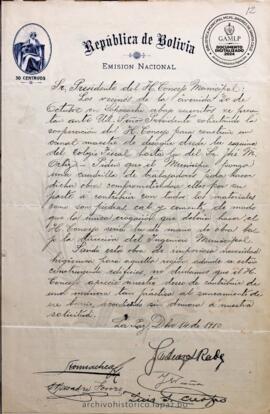 12
República de Bolivia
EMISION NACIONAL
30 CENTAVOS
GAMLP
DOCUMENTO
DIGITALIZADO
2024
Sr. Presidente del H. Concejo Municipal:
Los vecinos de la "avenida 20 de
Octubre" en abajo suscritos se presen
tan ante Ud. Señor Presidente solicitando la
cooperación del H. Concejo para construir un
canal maestro de desagüe desde la esquina
del Colegio Fiscal hasta la del Sr. José M.
Ortiz. Piden que el Municipio
una cuadrilla de trabajadores para hacer
dicha obra comprometiéndose ellos por su
parte a contribuir con todos los materiales
como son piedra, cal y cemento, de modo
que la única erogación que deberá hacer el H.
Concejo será la de mano de obra ba-
jo la dirección del Ingeniero Municipal.
Siendo esta obra de imprescindible necesidad
higiénica para aquella región adonde se están
construyendo edificios, no dudamos que el H.
Concejo aprecie nuestro deseo de contribuir de
una manera tan práctica al saneamiento de
ese barrio accediendo sin demora a nuestra
solicitud.
La Paz, 14 de 1910
archivohistorico.lapaz.bo